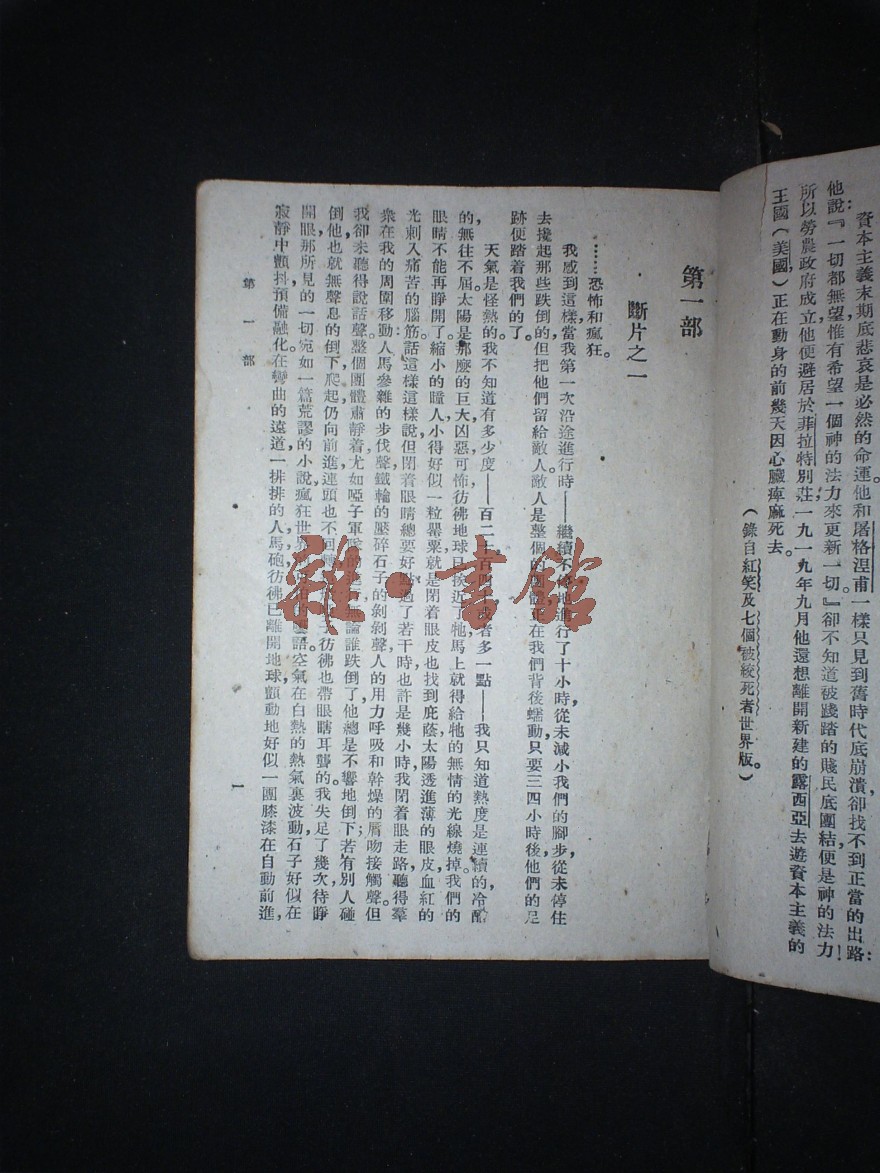 資本主義末期底悲哀是必然的命運。他和屠格涅甫一樣只見到舊時代底崩潰，卻找不到正當的出路：
他說：『一切都無望惟有希望一個神的法力來更新一切。』卻不知道被踐踏的賤民底團結便是神的法力！
所以勞農政府成立，他便避居於菲拉特別莊；一九一九年九月他還想離開新建的露西亞去遊資本主義的
王國（美國），正在動身的前幾天因心臟痺麻死去。
（錄自紅笑及七個被絞死者世界版。）
第一部
斷片之一
……恐怖和瘋狂。
我感到這樣，當我第一次沿途進行時——繼續不停地進行了十小時，從未減小我們的腳步，從未停住
去攙起那些跌倒的，但把他們留給敵人。敵人是整個的團體正在我們背後蠕動，只要三四小時後他們的足
跡便踏着我們的了。
天氣是怪熱的。我不知道有多少度——百二十，百四十，或者多一點——我只知道熱度是連續的，冷酷
的，無往不屆。太陽是那麼的巨大，凶惡，可怖，彷彿地球已挨近了牠，馬上就得給牠的無情的光線燒掉。我們的
眼睛不能再睜開了。縮小的瞳人，小得好似一粒罌粟，就是閉着眼皮也找到庇蔭：太陽透進薄的眼皮，血紅的
光刺入痛苦的腦筋。話這樣這樣說，但閉着眼睛總要好些，過了若干時，也許是幾小時，我閉着眼走路，聽得羣
衆在我的周圍移動：人馬參雜的步伐聲，鐵輪的壓碎石子的剝剝聲，人的用力呼吸和幹燥的脣吻接觸聲。但
我卻未聽得說話聲。整個團體肅靜着，尤如啞子軍隊的進行，無論誰跌倒了，他總是不響地倒下；若有別人碰
倒他，也就無聲息的倒下，爬起，仍向前進，連頭也不回，彷彿也帶眼瞎耳聾的。我失足了幾次，待睜
開眼，那所見的一切宛如一篇荒謬的小說，瘋狂世界的囈語。空氣在白熱的熱氣裏波動，石子好似在
寂靜中顫抖，預備融化。在彎曲的遠道，一排排的人，馬，砲，彷彿已離開地球，顫動地好似一團膝漆在自動前進，
第一部
一
雜·書館